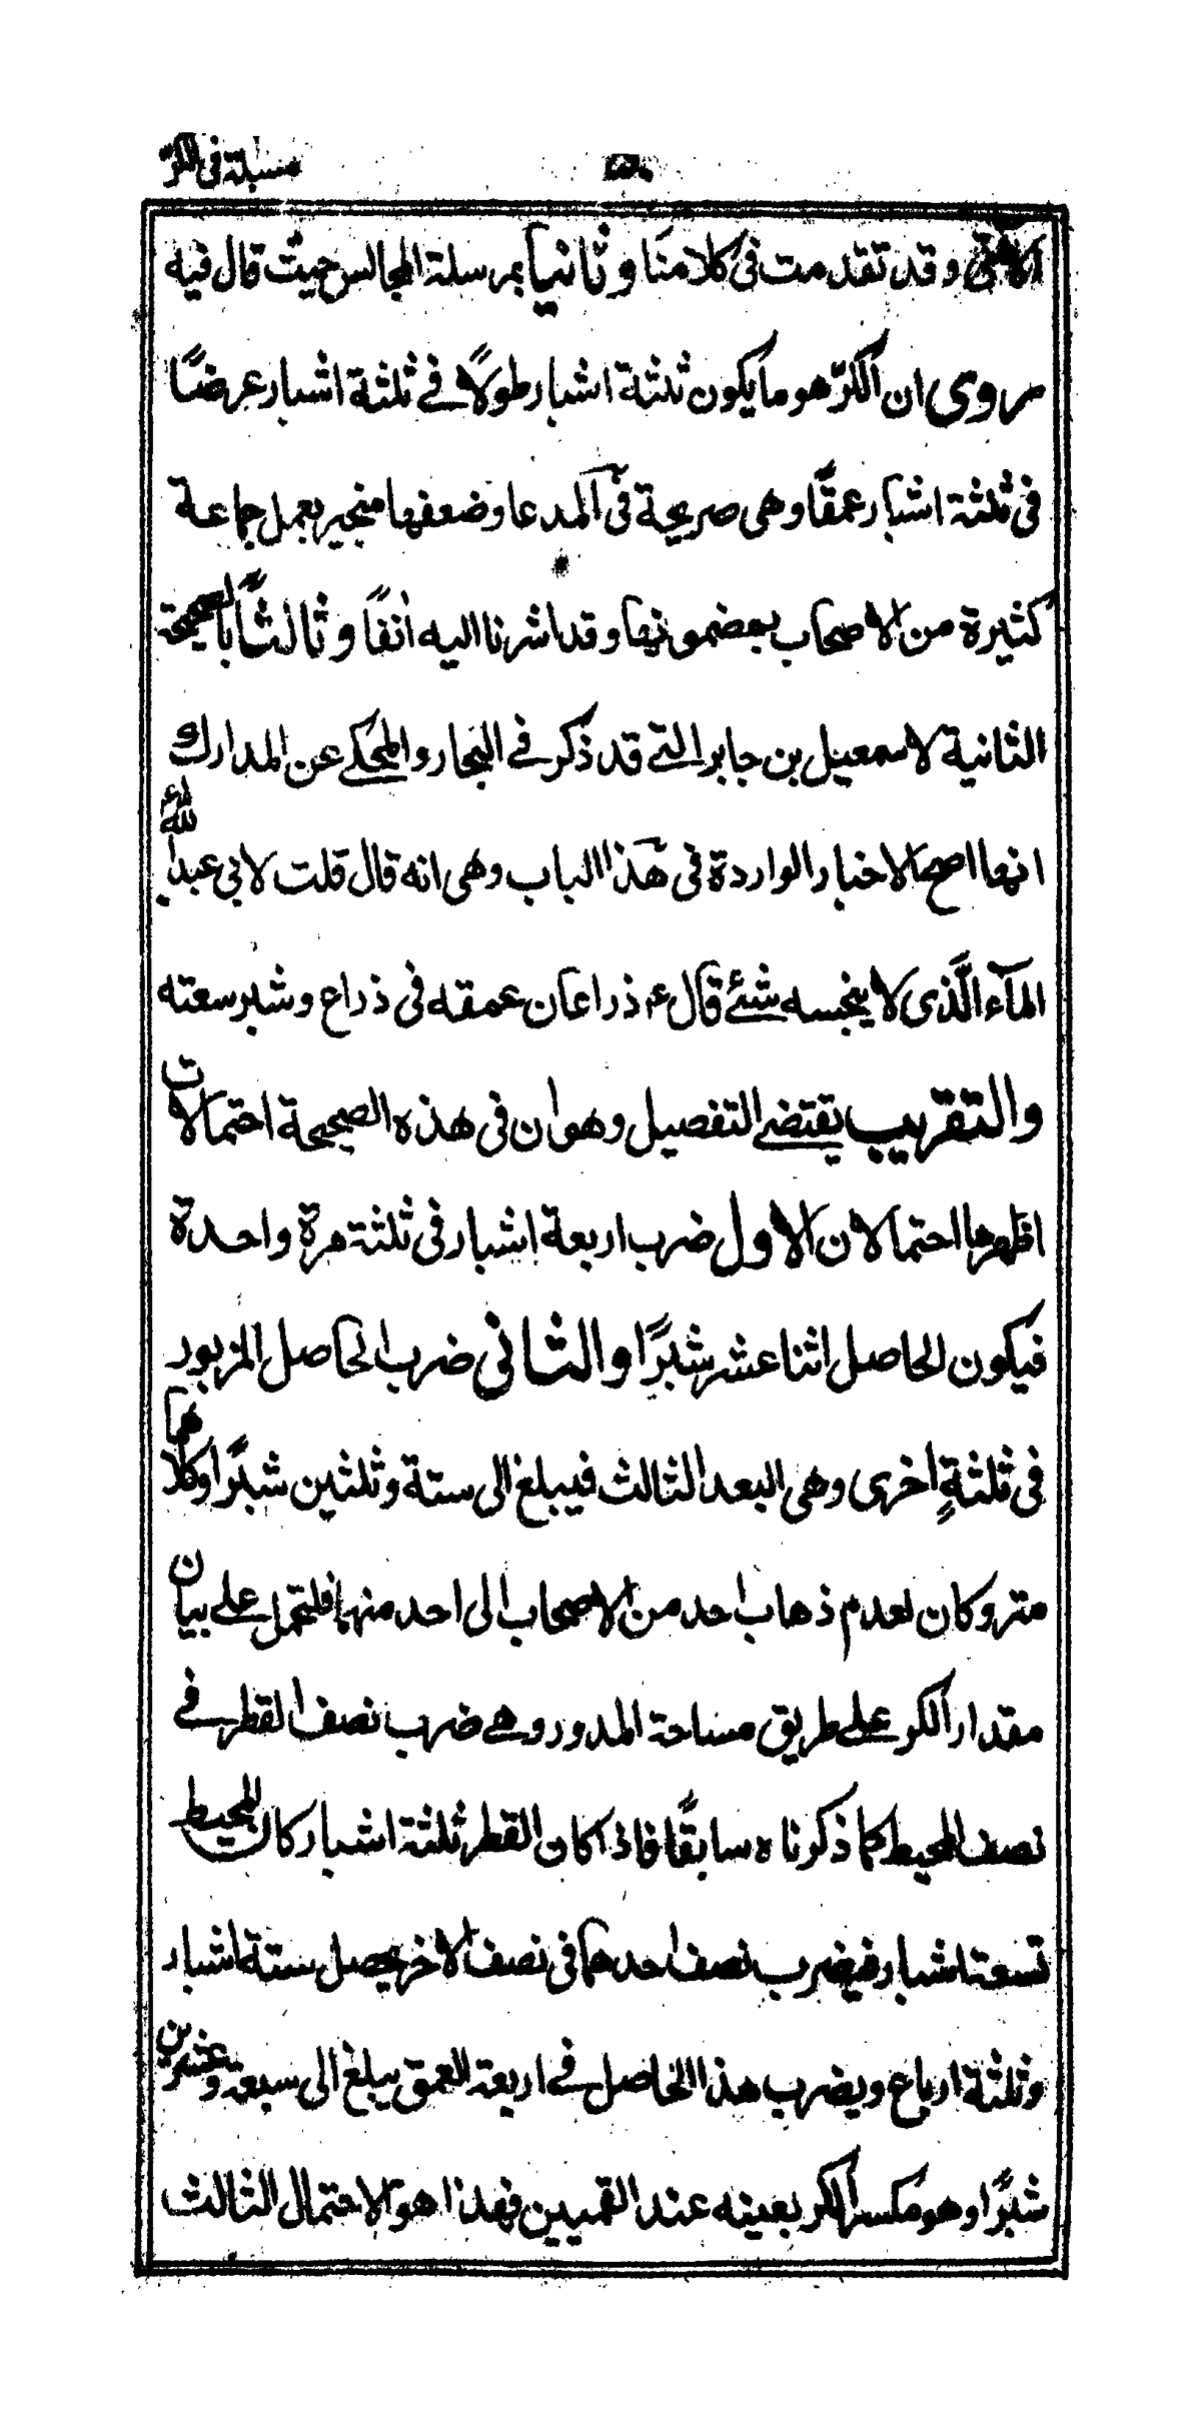 مسئلة فى الكرّ
وقد تقدمت فى كلامنا وثانيًا بمرسلة المجالس حيث قال فيه
مروى ان الكرّ هو ما يكون ثلثة اشبار طولًا فے ثلثة اشبار عرضًا
فى ثلثة اشبار عمقًا وهى صريحة فى المدعا وضعفها منجبر بعمل جماعة
كثيرة من الاصحاب بمضمونها وقد اشرنا اليه انفًا وثالثًا بالصحيحة
الثانية لاسمعيل بن جابر التے قد ذكر فے البحار والمحكے عن المدارك
انها اصح الاخبار الواردة فى هذا الباب وهى انه قال قلت لابى عبد اللهؑ
المآء الّذى لا ينجسه شئے قالؑ ذراعان عمقه فى ذراع وشبر سعته
والتقريب يقتضے التفصيل وهو ان فى هذه الصحيحة احتمالات
اظهرها احتمالان الاول ضرب اربعة اشبار فى ثلثة مرة واحدة
فيكون الحاصل اثنا عشر شبرًا والثانى ضرب الحاصل المزبور
فى ثلثةٍ اخرى وهى البعد الثالث فيبلغ الى ستة وثلثين شبرًا وكلاهما
متروكان لعدم ذهاب احد من الاصحاب الى احد منهما فلتحمل علے بيان
مقدار الكر علے طريق مساحة المدور وهے ضرب نصف القطر فے
نصف المحيط كما ذكرناه سابقًا فاذا كان القطر ثلثة اشبار كان المحيط
تسعة اشبار فيضرب نصف احدهما فى نصف الاخر يحصل ستة اشبار
وثلثة ارباع ويضرب هذا الحاصل فے اربعة العمق يبلغ الى سبعة وعشرين
شبرًا وهو مكسر الكر بعينه عند القميين فهذا هو الاحتمال الثالث